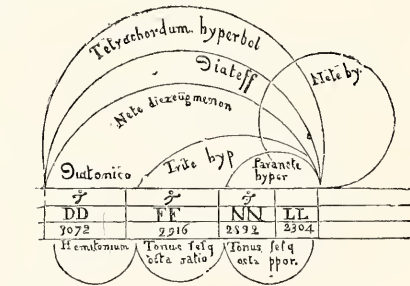 Tetrachordum hyperbol
Diateff
Nete by.
Nete diezeugmenon
Diatonico
Trite hyp
Paranete
hyper
DD FF NN LL
3072 2916 2592 2304
Hemitonium Tonus sesq Tonus sesq
octa ratio octa ppor.